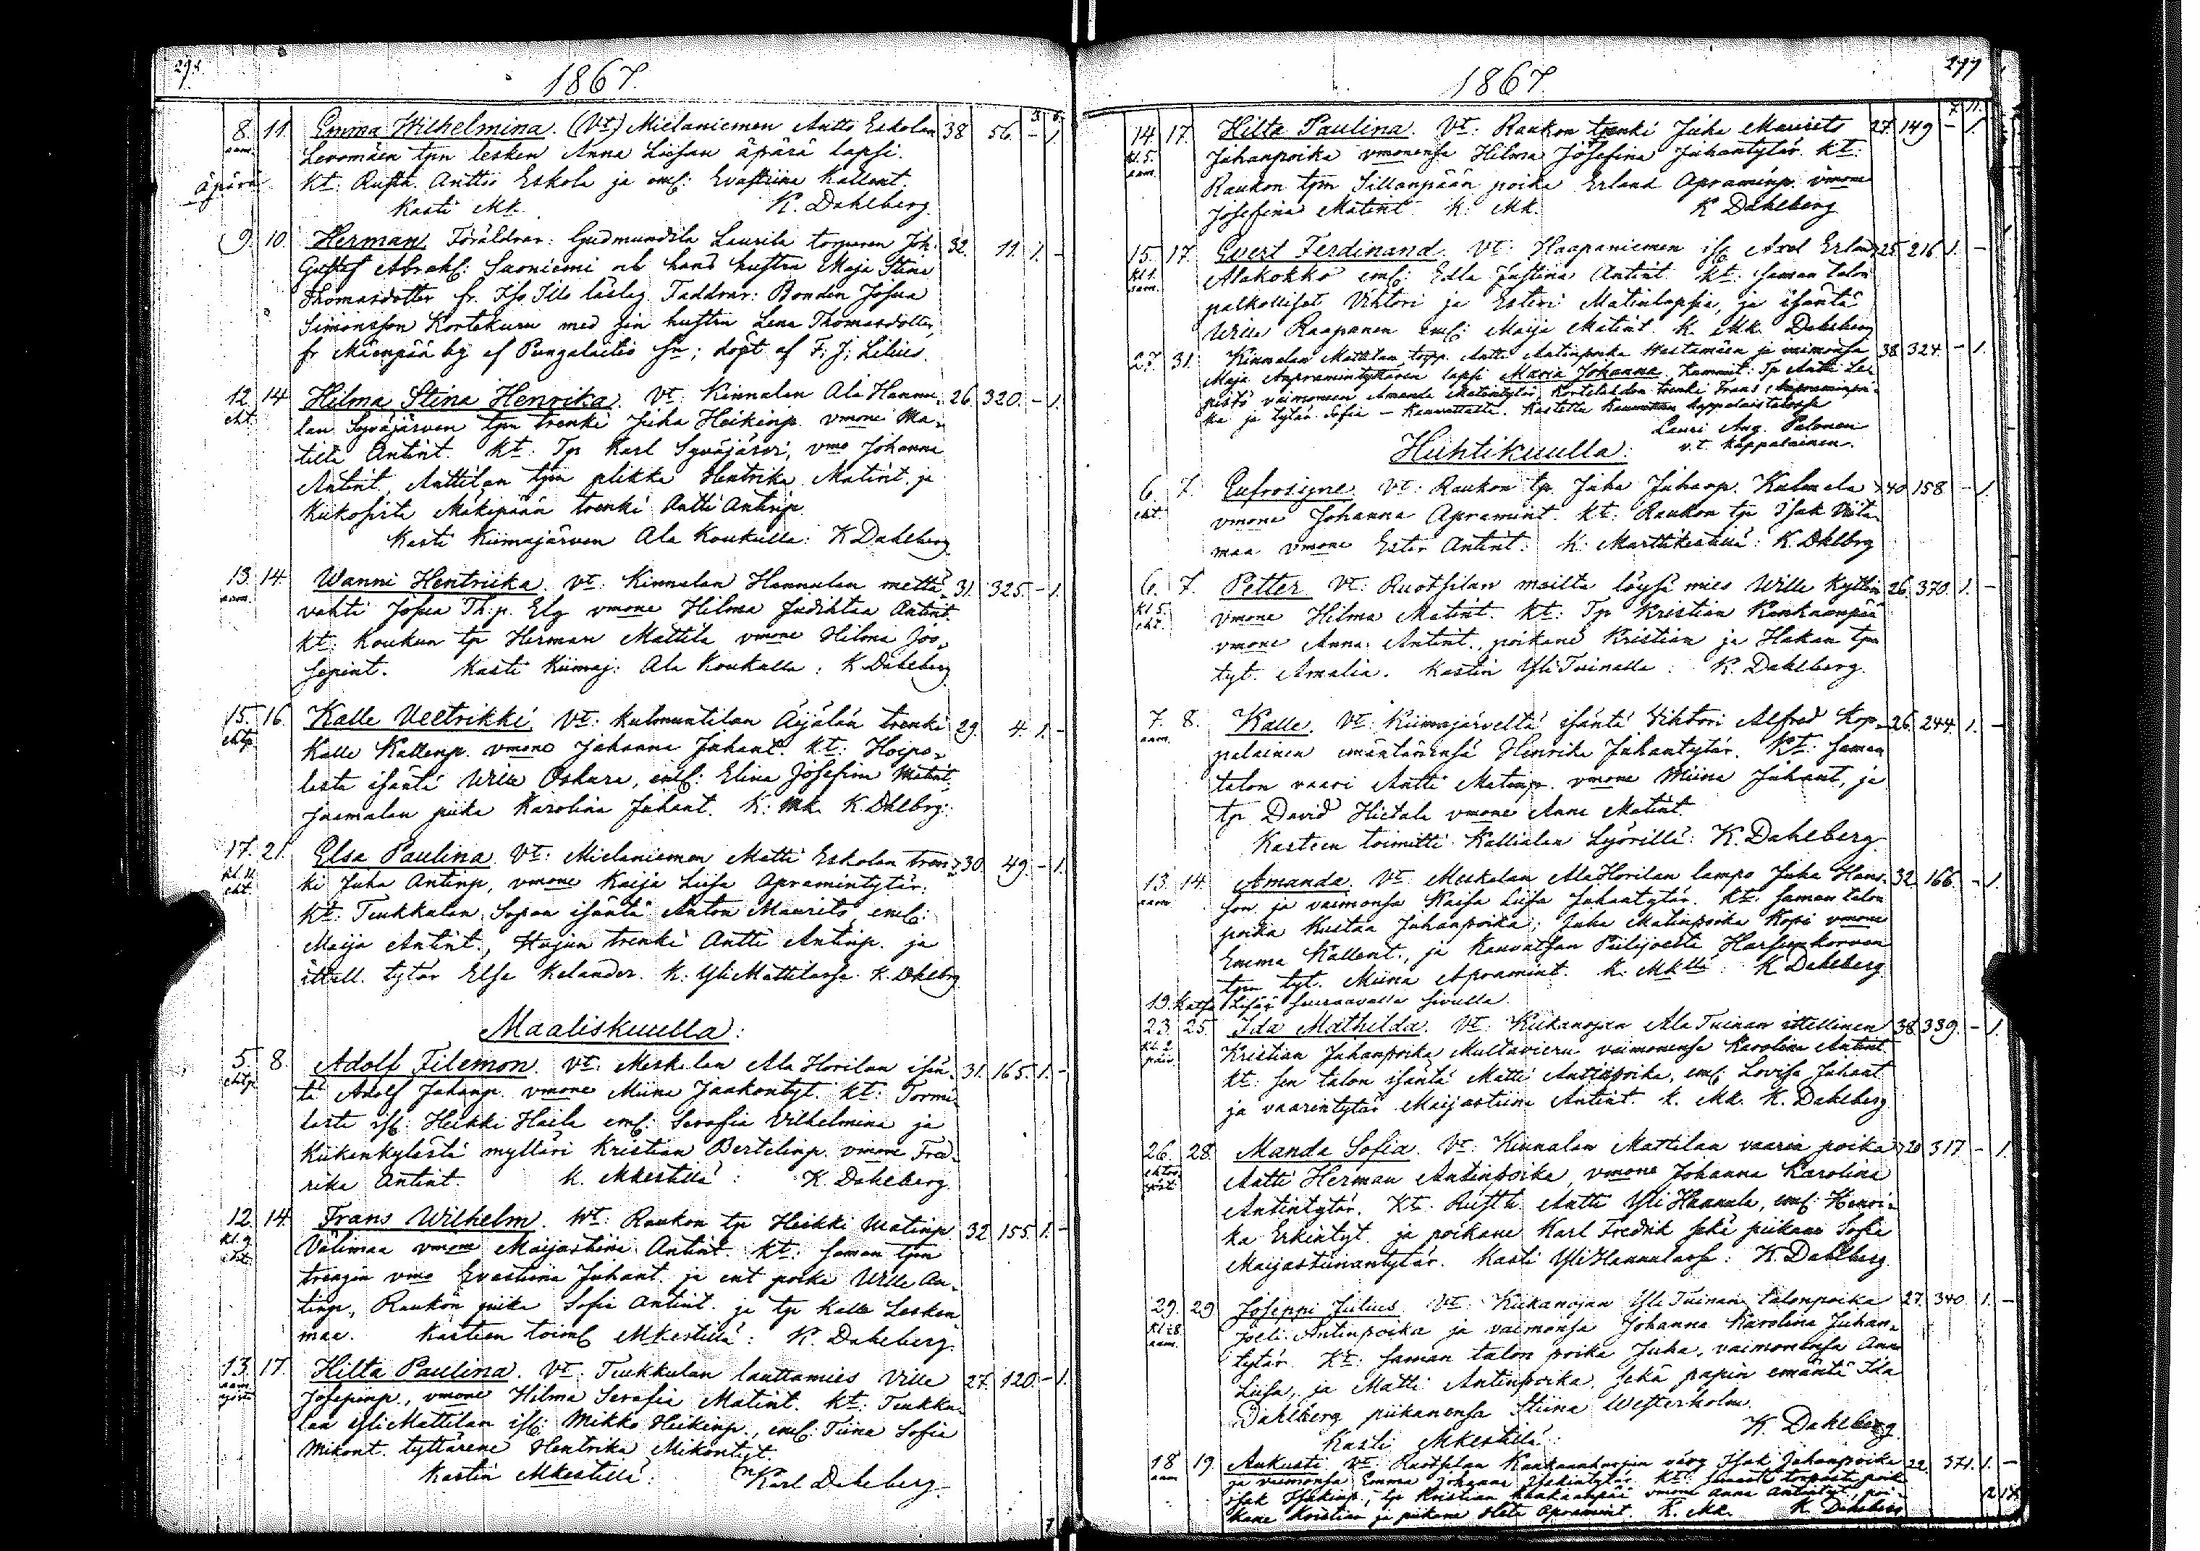 1867.
8. 11. Emma Wilhelmina. (Vt) Mielaniemen Antto Eskolan 38 56. - 1.
aam. Levomäen tpn lesken Anna Liisan äpärä lapsi.
äpärä. kt: Rusth. Anttoo Eskola ja emd: Evastiina Kallent.
Kasti Mk. K. Dahlberg.
9. 10. Herman Föräldrar: Gudmundila Laurila torparen Joh. 32. 11. 1. -
Gustef Abrah: Saoniemi och hans hustru Maja Stina
Thomasdotter fr. Iso Illo läsleg. Faddrar: Bonden Josua
Simonsson Kortekuru med sin hustru Lena Thomasdotter
fr Mäenpää by af Pungalaitio sn; döpt af F. J. Lilius.
12. 14. Hilma Stina Henrika. Vt: Kinnalan Ala Hannu- 26. 320. - 1.
eht. lan Syväjärven tpn trenki Juha Heikinp. vmone Ma-
tilta Antint. kt: Tp Karl Syväjärvi, vmo Johanna
Antint. Anttilan tpn plikka Hentrika Matint. ja
Kukofirta Mäkipään trenki Antti Antinp.
Kasti Kiimajärven Ala Koukulla: K Dahlberg
13. 14. Wanni Hentriika. Vt: Kinnalan Hannulan mettä- 31. 325. - 1.
aam. vahti Josua Th.p. Elg vmone Hilma Judihtaa Antint.
kt: Koukun tp Herman Mattila vmone Hilma Joo-
sepint. Kasti Kiimaj: Ala Koukulla: K Dahlberg
15. 16. Kalle Veetrikki. Vt: Kulmuntilan Äijälän trenki 29. 4. 1. -
ehtp. Kalle Kallenp. vmone Johanna Juhant. kt: Hoipo-
lasta isäntä Wille Oskara, emd: Elina Josefina Matint.
Juamalan piika Karolina Juhant. K: Mk. K. Dhlbrg:
17. 21. Elsa Paulina. Vt: Mielaniemen Matti Eskolan tren- 30. 49. - 1.
kl. 11. eht. ki Juha Antinp, vmone Kaija Liisa Apramintytär.
kt: Tiukkulan Sopan isäntä Anton Maurits, emd:
Maija Antint., Hujun trenki Antti Antinp. ja
ittell. tytär Elsa Kelander. K. Yli Mattilassa. K. Dhlbrg
Maaliskuulla:
5. 8. Adolf Filemon. Vt: Meskalan Ala Horilan isän- 31. 165. 1. -
ehtp. tä Adolf Juhanp. vmone Miina Jaakontyt. kt: Torni-
lasta isd: Heikki Haila emd: Serafia Vilhelmina ja
Kiikankylästä mylläri Kristian Bertelinp. vmone Fred-
rika Antint. K. Mkestillä: K. Dahlberg.
12. 14. Frans Wilhelm. Vt: Raukon tp Heikki Matinp 32 155. 1. -
kl. 9. eht. Välimaa vmone Maijastiina Antint. kt: saman tpn
trengin vmo Evastiina Juhant. ja ent poika Wille An-
tinp, Raukon piika Sofia Antint. ja tp Kalle Lesken-
maa. Kasteen toim: Mkestillä: K. Dahlberg.
13. 17. Hilta Paulina. Vt: Tiukkulan lauttamies Ville 27. 120. - 1.
aam. Josepinp., vmone Hilma Serafia Matint. kt: Tiukku-
lan Yli Mattilan isd: Mikko Heikinp., emd: Tiina Sofia
Mikont. tyttärene Hentrika Mikontyt.
Kastin Mkestillä: Karl Dahlberg.
1867.
277
14. 17. Hilta Paulina. Vt: Raukon trenki Juha Maurits 27. 149 - 1.
kl. 5. aam. Juhanpoika vmonensa Hilma Josefina Juhantytär. kt:
Raukon tpn Sillanpään poika Erland Apraminp. vmone
Josefina Matint. K: Mk. K Dahlberg
15. 17. Evert Ferdinand. Vt: Haapaniemen isd: Axel Erland 25. 216. 1. -
kl. 1. aam. Alakokko emd: Edla Justina Antint. kt: saman talon
palkolliset Vihtori ja Esteri Matinlapsia, ja isäntä
Wille Raapanen emd: Maija Matint. K. Mk. Dahlberg
27. 31. Kinnalan Mattilan torpp. Antti Antinpoika Wastamäen ja vaimonsa 38 324. - 1.
Maja Apramintyttären lapsi Maria Johanna. kummit: Tp Antti La-
pistö vaimoneen Amanda Matintytär, Kortelahdon trenki Frans Apraminpoi-
ka ja tytär Sofia - Kauvattalta. Kastettu Kauvattan kappalaistalossa
Lauri Aug. Palonen
v.t. kappalainen.
Huhtikuulla:
6. 7. Eufrosyne. Vt: Raukon tp. Juha Juhanp. Kulmala 40. 158. - 1.
eht. vmone Johanna Apramint. kt: Raukon tp Isak Viita-
maa vmone Ester Antint: K: Marttikestillä: K. Dhlbrg
6. 7. Petter. Vt: Ruotsilan mailta löysä mies Wille Kyttön 26. 370. 1. -
kl. 5. eht. vmone Hilma Matint. kt: Tp Kristian Kankaanpää
vmone Anna Antint., poikane Kristian ja Hakan tpn
tyt. Amalia. Kastin Yli Tuinalla: K. Dahlberg.
7. 8. Kalle. Vt: Kiimajärveltä isäntä Vihtori Alfred Kop- 26. 244. 1. -
aam. palainen emäntänensä Henrika Juhantytär. kt: saman
talon vaari Antti Matinp. vmone Miina Juhant, ja
tp David Hietala vmone Anna Matint.
Kasteen toimitti Kallialan Lyörillä: K. Dahlberg.
13. 14. Amanda. Vt: Meskalan Ala Horilan lampo Juha Hans- 32. 166. - 1.
aam son ja vaimonsa Kaisa Liisa Juhantytär. kt: saman talon
poika Kustaa Juhanpoika; Juha Matinpoika Kopi vmone
Emma Kallent., ja Kauvatsan Piilijoesta Harjunkorven
tpn tyt. Miina Apramint. K. Mkllä: K Dahlberg.
19. katso Lisää seuraavalla sivulla.
23. 25. Ida Mathilda. Vt: Kiikanojan Ala Tuinan ittellinen 38. 339. - 1.
kl. 2. päiv. Kristian Juhanpoika Multavieru vaimonensa Karolina Antint.
kt: sen talon isäntä Matti Anttinpoika, emd: Lovisa Juhant
ja vaarintytär Maijastiina Antint. K. Mk. K. Dahlberg
26. 28. Manda Sofia. Vt: Kinnalan Mattilan vaarin poika 20 317 - 1.
Antti Herman Antinpoika, vmone Johanna Karolina
Antintytär. Kt: Rusth. Antti Yli Hannula, emd: Henri-
ka Erkintyt. ja poikane Karl Fredrik sekä piikane Sofia
Maijastiinantytär. Kasti Yli Hannulassa: K. Dahlberg
29. 29 Joseppi Julius. Vt: Kiikanojan Yli Tuinan talonpoika 27. 340. 1. -
kl. 8. aam. Joeli Antinpoika ja vaimonsa Johanna Karolina Juhan-
tytär. Kt: saman talon poika Juha, vaimonensa Anna
Liisa, ja Matti Antinpoika, sekä papin emäntä Ida
Dahlberg piikanensa Stiina Westerholm.
Kasti Mkestillä: K. Dahlberg
18 19. Aukusti Vt: Ruotsilan Kankaanharjun vävy Isak Juhanpoika 22. 371. 1. -
aam ja vaimonsa Emma Johanna Isakintytär. kt: samasta torpasta poik
Isak Isakinp., tp Kristian Kankaanpää vmone Anna Antintyt, poi-
kane Kristian ja piikane Heta Apramint. K. Mk. K. Dahlberg